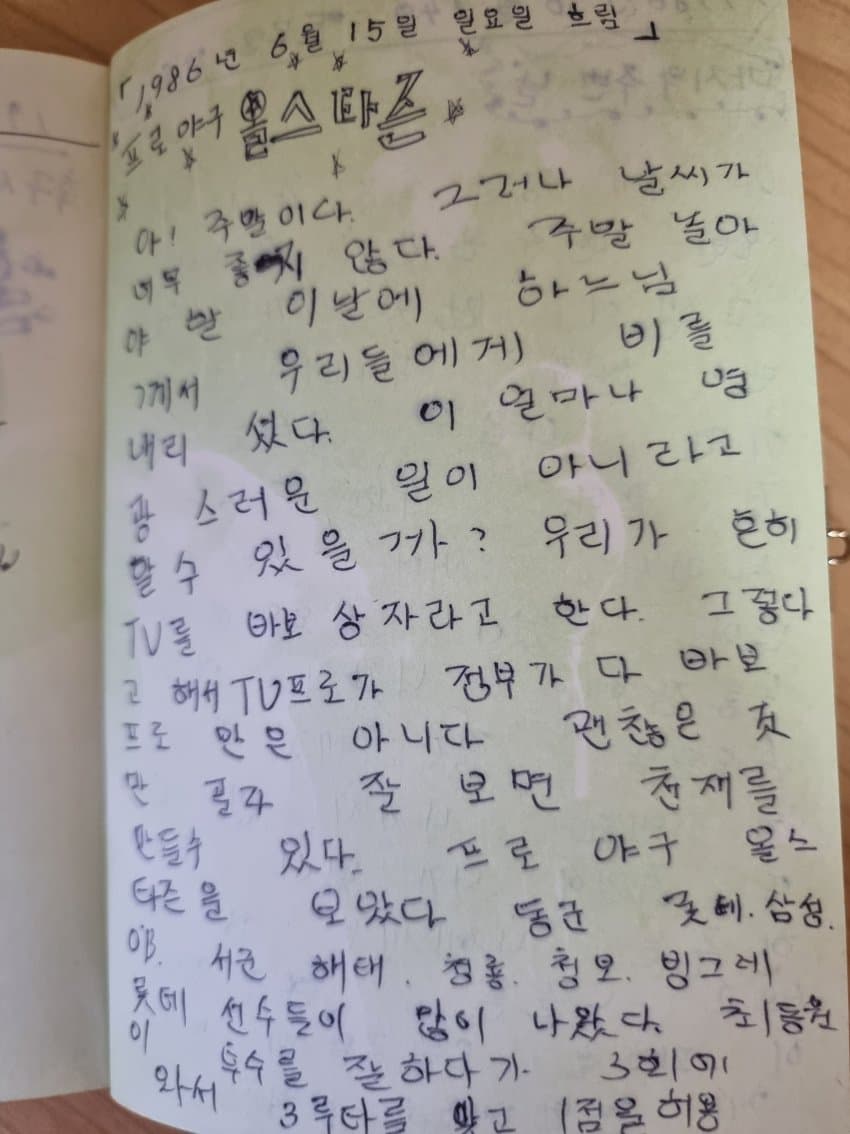 「1986년 6월 15일 일요일 흐림」
프로야구 올스타즈
아! 주말이다. 그러나 날씨가
너무 좋지 않다. 주말 놀아
야 할 이날에 하느님
께서 우리들에게 비를
내리 셨다. 이 얼마나 영
광 스러운 일이 아니라고
할수 있을까? 우리가 흔히
TV를 바보상자라고 한다. 그렇다
고 해서 TV프로가 전부가 다 바보
프로 만은 아니다 괜찮은 것
만 골라 잘 보면 천재를
만들수 있다. 프로 야구 올스
타즌을 보았다 동군 롯테. 삼성.
OB. 서군 해태. 청룡. 청보. 빙그레
롯데 선수들이 많이 나왔다. 최동원
이 와서 투수를 잘하다가 3회에
3루타를 맞고 1점을 허용